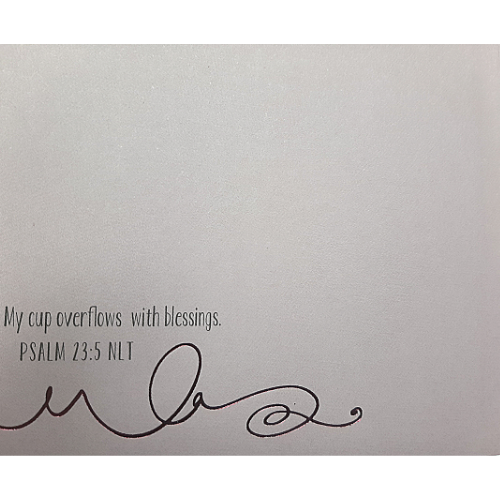 My cup overflows with blessings.
PSALM 23:5 NLT